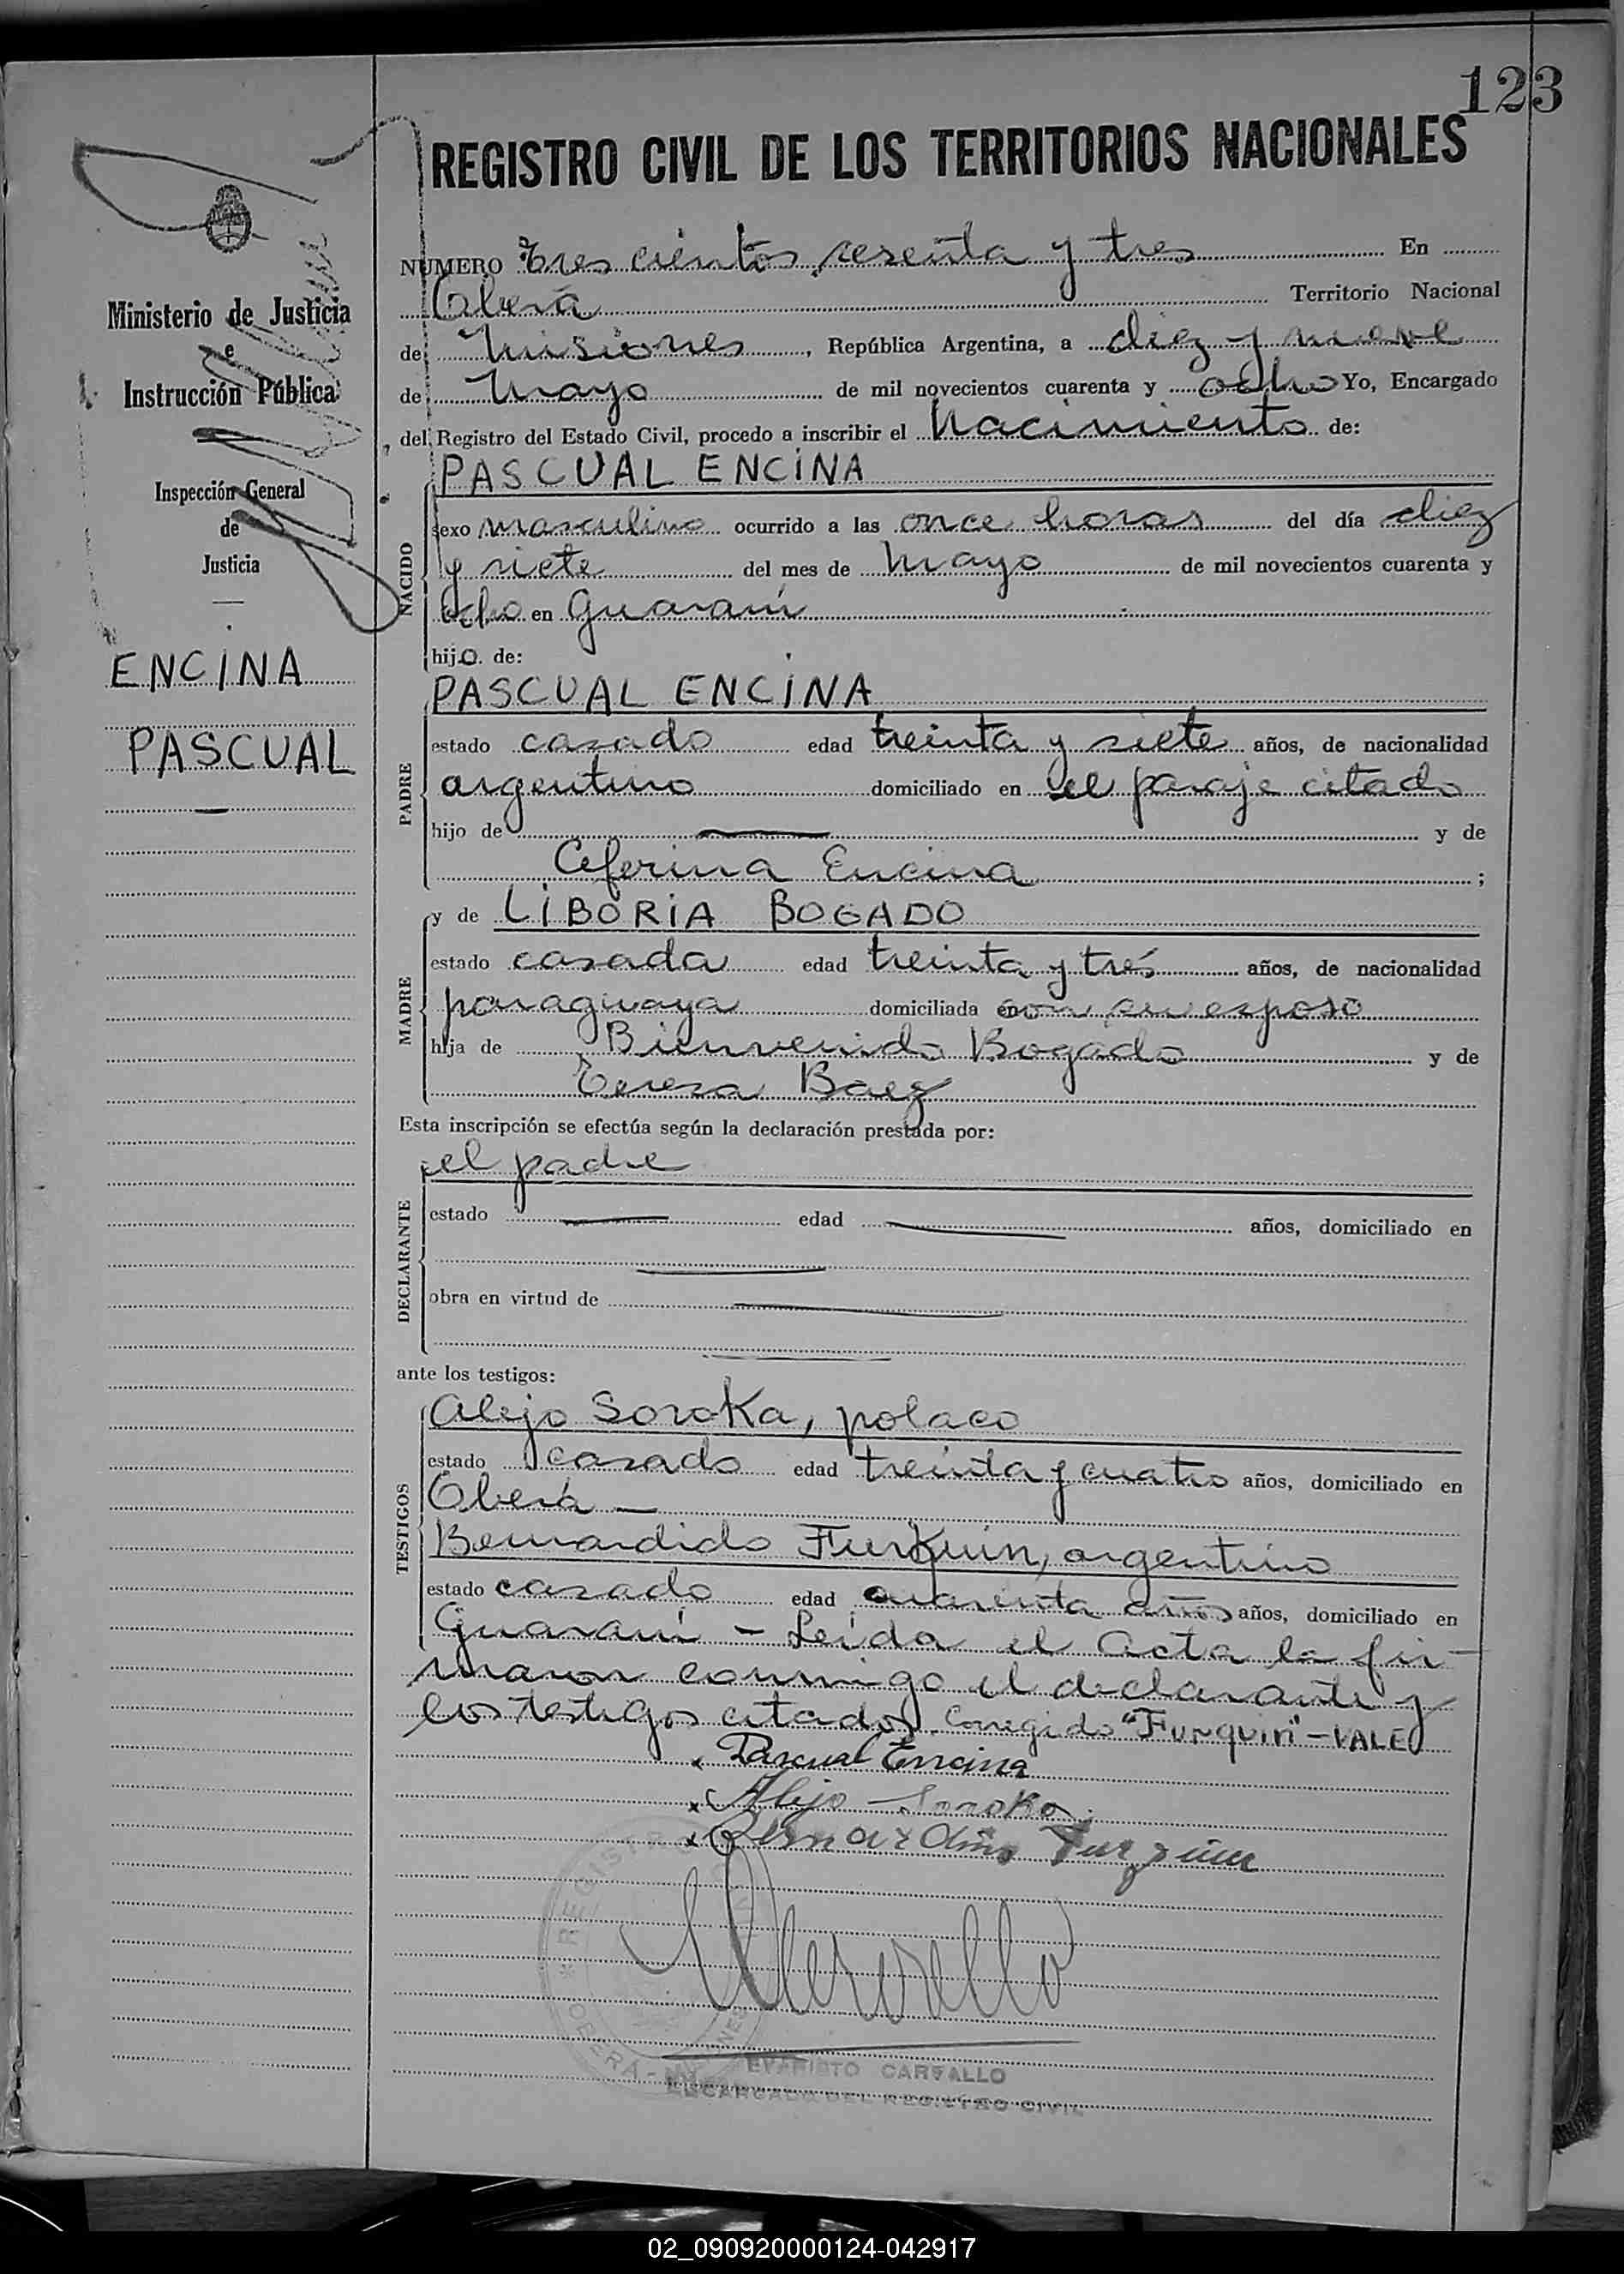 123
REGISTRO CIVIL DE LOS TERRITORIOS NACIONALES
Ministerio de Justicia
e
Instrucción Pública
Inspección General
de
Justicia
ENCINA
PASCUAL
NUMERO Trescientos sesenta y tres En
Oberá Territorio Nacional
de Misiones, República Argentina, a diez y nueve
de Mayo de mil novecientos cuarenta y ocho Yo, Encargado
del Registro del Estado Civil, procedo a inscribir el Nacimiento de:
PASCUAL ENCINA
NACIDO
sexo masculino ocurrido a las once horas del día diez
y siete del mes de Mayo de mil novecientos cuarenta y
ocho en Guaraní
hijo de:
PASCUAL ENCINA
PADRE
estado casado edad treinta y siete años, de nacionalidad
argentino domiciliado en el paraje citado
hijo de — y de
Ceferina Encina;
MADRE
y de LIBORIA BOGADO
estado casada edad treinta y trés años, de nacionalidad
paraguaya domiciliada con su esposo
hija de Bienvenido Bogado y de
Teresa Baez
Esta inscripción se efectúa según la declaración prestada por:
el padre
DECLARANTE
estado — edad — años, domiciliado en
—
obra en virtud de —
—
ante los testigos:
TESTIGOS
Alejo Soroka, polaco
estado casado edad treinta y cuatro años, domiciliado en
Oberá —
Bernardido Furkuin, argentino
estado casado edad cuarenta años años, domiciliado en
Guaraní - Leída el Acta la fir-
maron conmigo el declarante y
los testigos citados. Corregido "Furquin" - VALE
x Pascual Encina
x Alejo Soroka
x Bernardino Furquin
REGISTRO
OBERÁ - MISIONES
EVARISTO CARVALLO
ENCARGADO DEL REGISTRO CIVIL
02_090920000124-042917